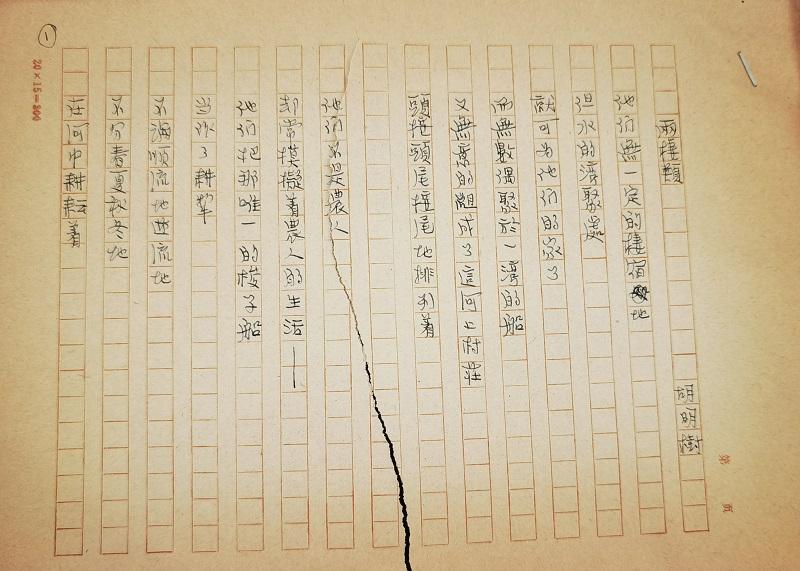 兩棲類
胡明樹
他们無一定的棲宿地
但水的濟聚處
就可为他们的家了
而無數偶聚於一濟的船
又無意的組成了這河上村莊
頭接頭尾接尾地排列着
他们不是農人
却常模擬着農人的生活——
他们把那唯一的梭子船
当作了耕犂
不論順流地逆流地
不分春夏秋冬地
在河中耕耘着
①
20×15=300
第 页